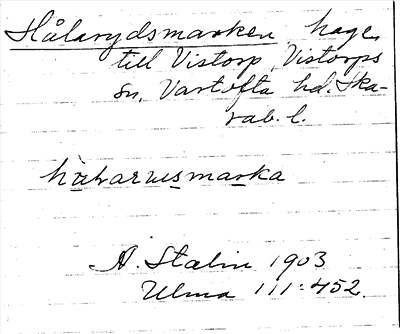 Hålarydsmarken, hage,
till Vistorp, Vistorps
sn, Vartofta hd. Ska-
rab. l.
A. Stalin 1903
Ulma 111:452.